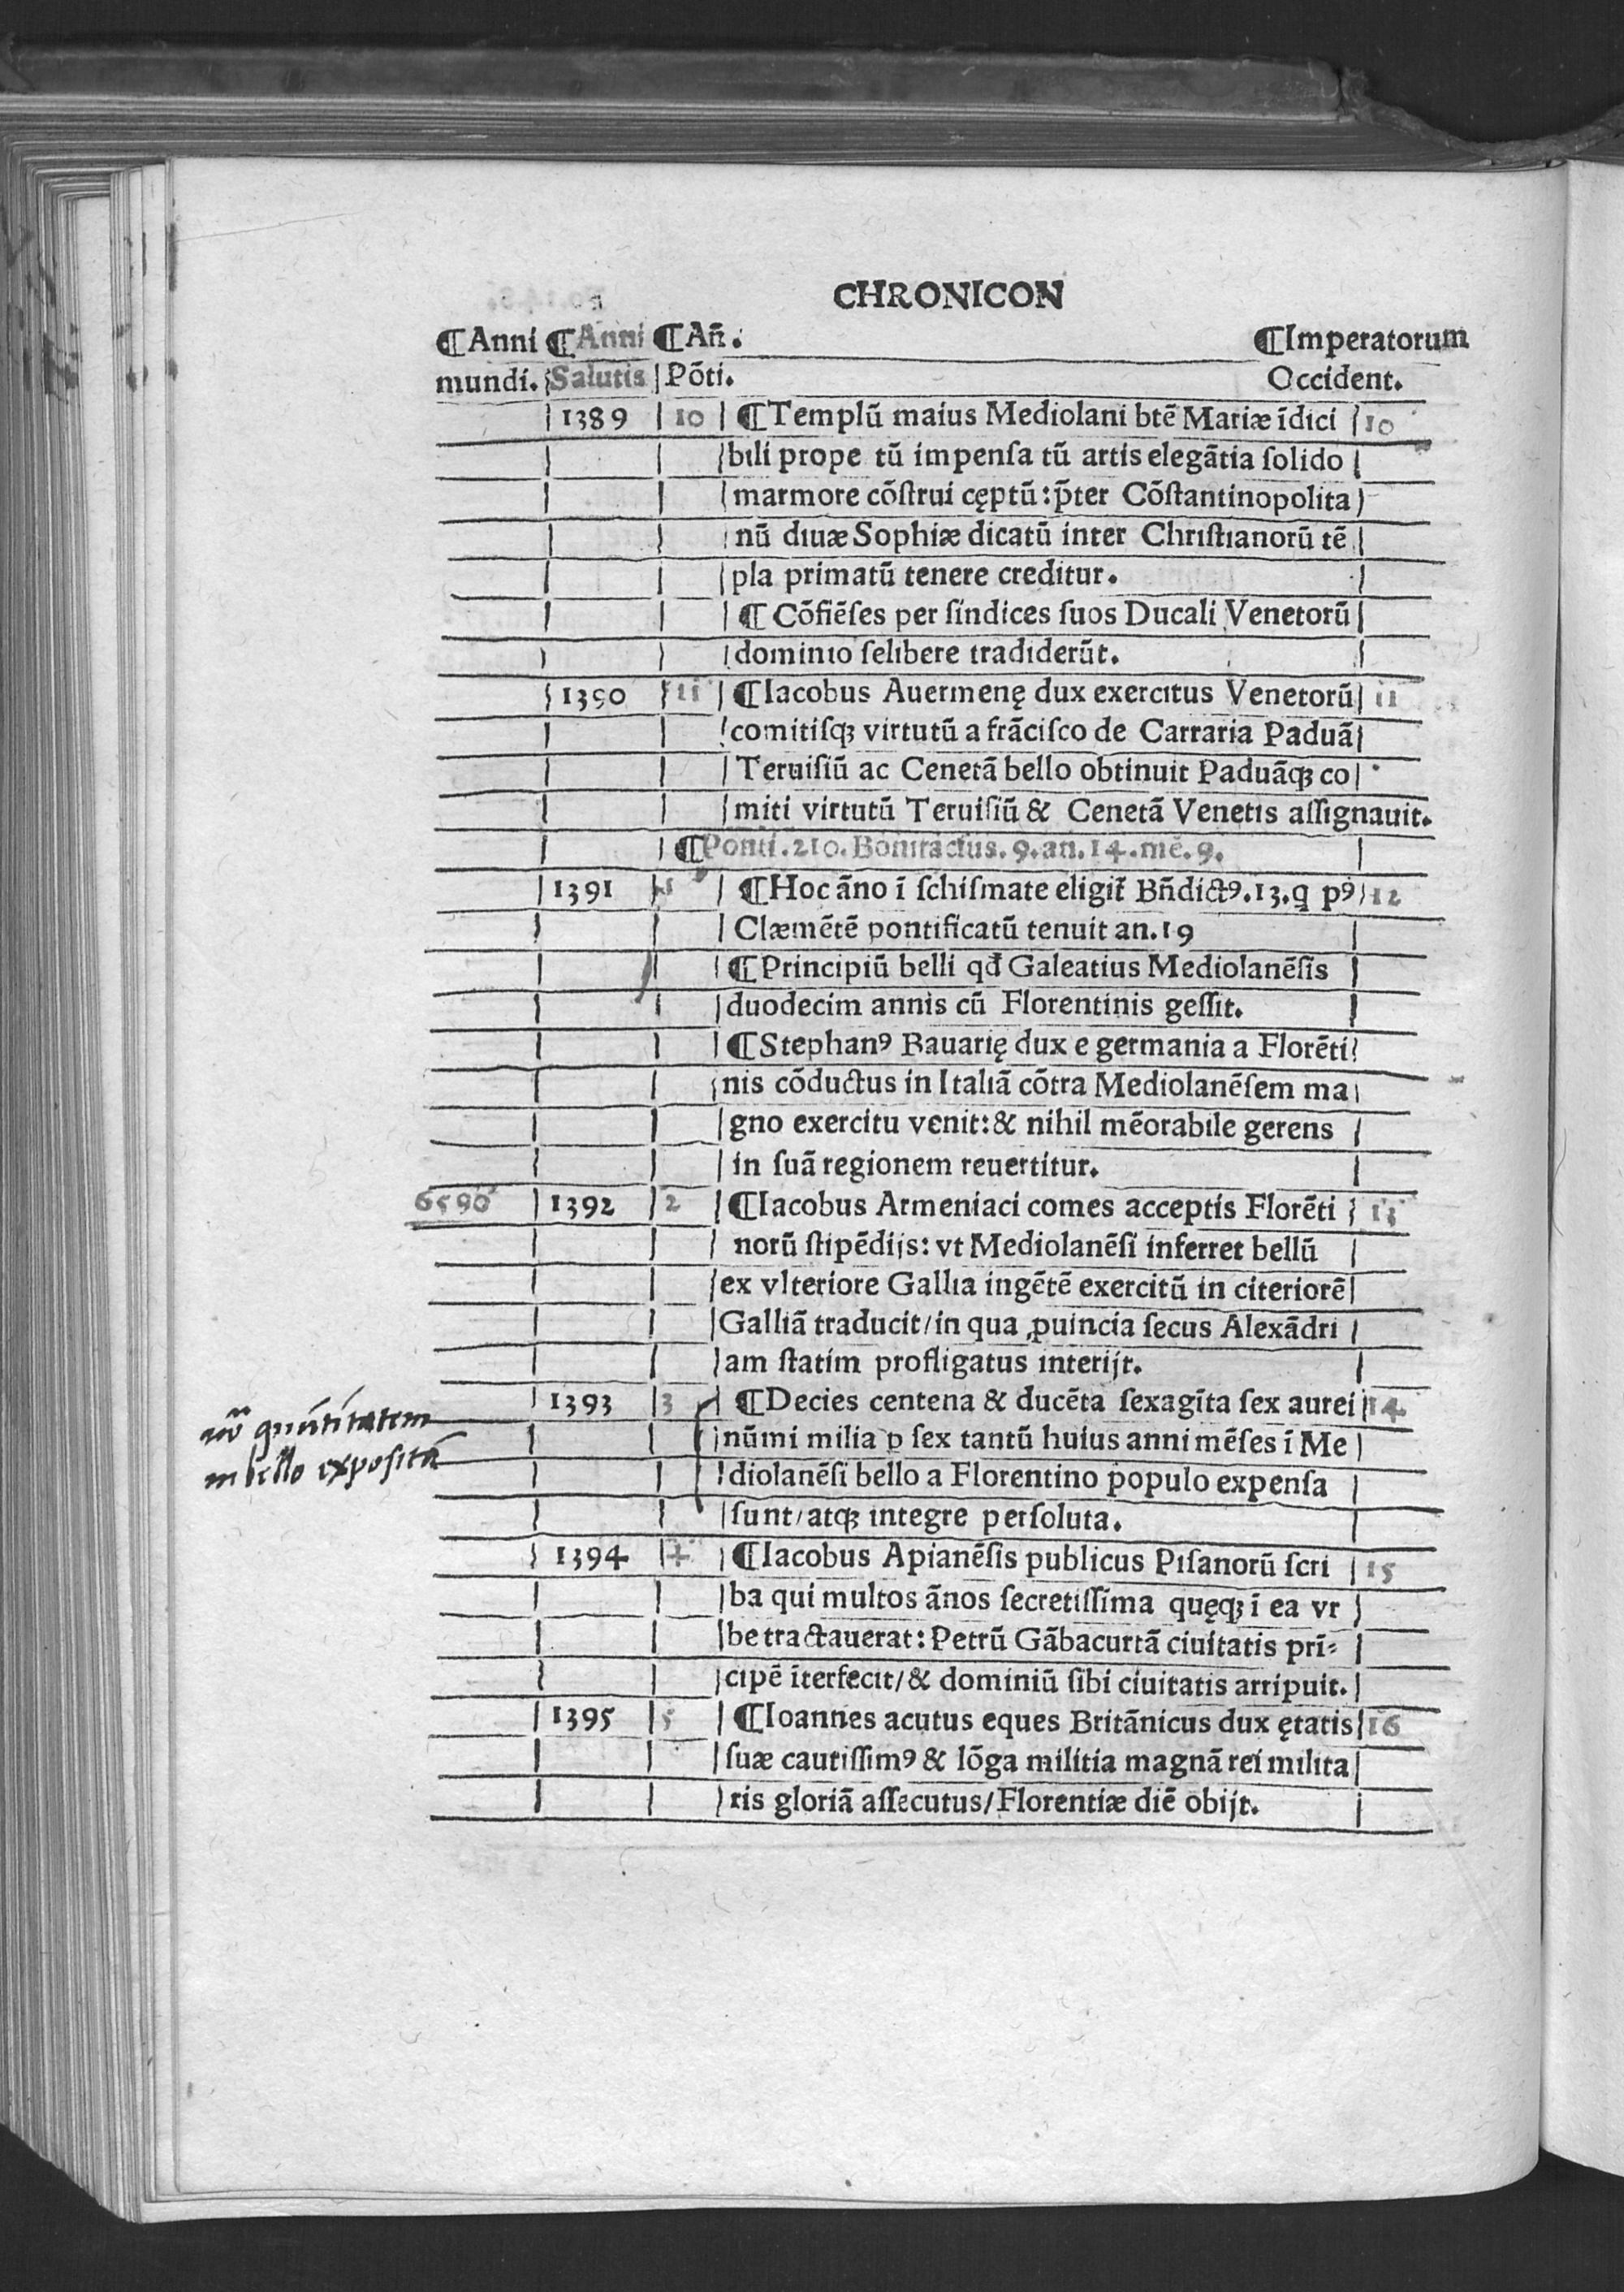 CHRONICON
¶Anni ¶Anni ¶An̄. ¶Imperatorum
mundi. Salutis Põti. Occident.
1389 10 ¶Templũ maius Mediolani btẽ Mariæ ĩdici 10
bili prope tũ impenſa tũ artis elegãtia ſolido
marmore cõſtrui cęptũ: p̃ter Cõſtantinopolita
nũ diuæ Sophiæ dicatũ inter Chriſtianorũ tẽ
pla primatũ tenere creditur.
¶ Cõfiẽſes per ſindices ſuos Ducali Venetorũ
dominio ſelibere tradiderũt.
1390 11 ¶Iacobus Auermenę dux exercitus Venetorũ 11
comitiſqꝫ virtutũ a frãciſco de Carraria Paduã
Teruiſiũ ac Cenetã bello obtinuit Paduãqꝫ co
miti virtutũ Teruiſiũ & Cenetã Venetis aſſignauit.
¶Ponti.210.Bonifacius.9.an.14.mẽ.9.
1391 1 ¶Hoc ãno ĩ ſchiſmate eligit̃ Bñdictꝰ.13.q pꝰ 12
Clæmẽtẽ pontificatũ tenuit an.19
¶Principiũ belli qđ Galeatius Mediolanẽſis
duodecim annis cũ Florentinis geſſit.
¶Stephanꝰ Bauarię dux e germania a Florẽti
nis cõductus in Italiã cõtra Mediolanẽſem ma
gno exercitu venit: & nihil mẽorabile gerens
in ſuã regionem reuertitur.
6590 1392 2 ¶Iacobus Armeniaci comes acceptis Florẽti 13
norũ ſtipẽdijs: vt Mediolanẽſi inferret bellũ
ex vlteriore Gallia ingẽtẽ exercitũ in citeriorẽ
Galliã traducit/in qua ꝓuincia ſecus Alexãdri
am ſtatim profligatus interijt.
1393 3 ¶Decies centena & ducẽta ſexagĩta ſex aurei 14
nũmi milia ꝑ ſex tantũ huius anni mẽſes ĩ Me
diolanẽſi bello a Florentino populo expenſa
ſunt/atqꝫ integre perſoluta.
in bello expositã
1394 4 ¶Iacobus Apianẽſis publicus Piſanorũ ſcri 15
ba qui multos ãnos ſecretiſſima quęqꝫ ĩ ea vr
be tractauerat: Petrũ Gãbacurtã ciuitatis pri⸗
cipẽ ĩterfecit/& dominiũ ſibi ciuitatis arripuit.
1395 5 ¶Ioannes acutus eques Britãnicus dux ętatis 16
ſuæ cautiſſimꝰ & lõga militia magnã rei milita
ris gloriã aſſecutus/Florentiæ diẽ obijt.